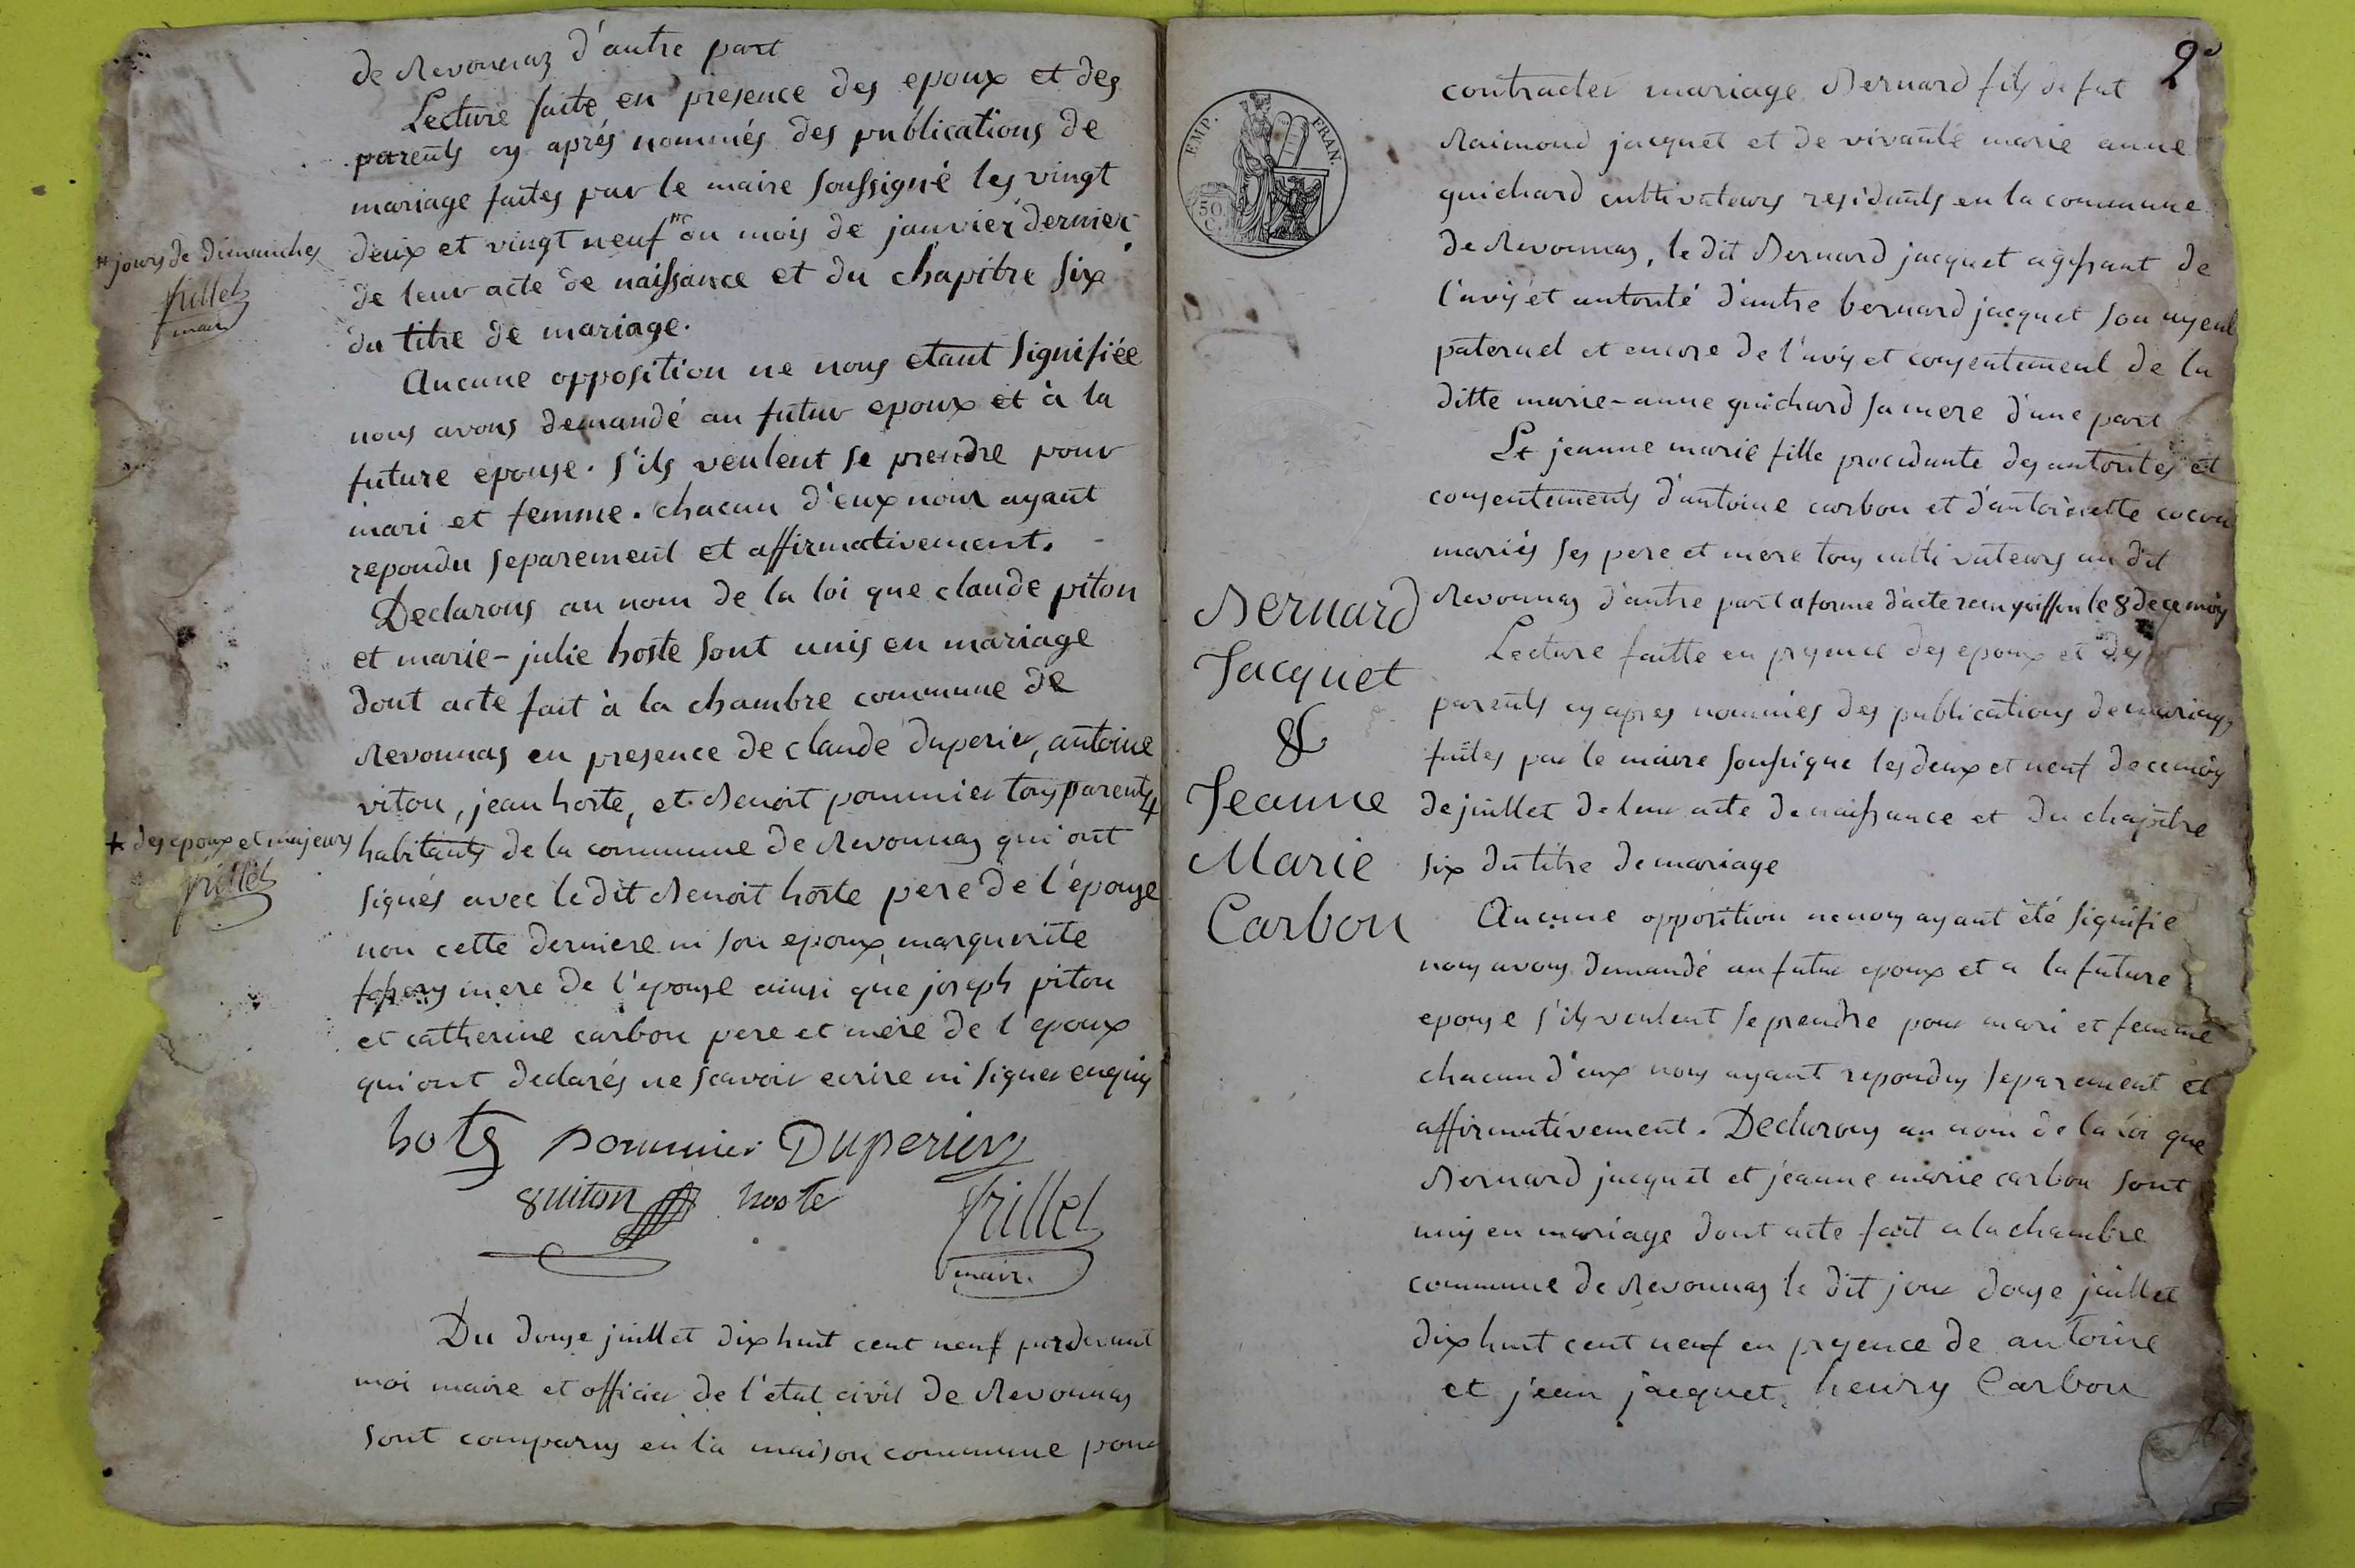 de Revonnaz d'autre part
Lecture faite en presence des epoux et des
parents cy aprés nommés des publications de
mariage faites par le maire soussigné les vingt
deux et vingt neuf # du mois de janvier dernier
# jours de dimanches
frillet
maire
de leur acte de naissance et du chapitre six
du titre de mariage.
Aucune opposition ne nous etant signifiée
nous avons demandé au futur epoux et à la
future epouse. s'ils veulent se prendre pour
mari et femme. chacun d'eux nous ayant
repondu separement et affirmativement.
Declarons au nom de la loi que claude piton
et marie-julie hoste sont unis en mariage
dont acte fait à la chambre commune de
Revonnas en presence de claude duperier, antoine
viton, jean hoste, et Benoit pommier tous parents +
+ des epoux et majeurs
frillet
habitants de la commune de Revonnas qui ont
signés avec le dit Benoit hoste pere de l'épouse
non cette derniere ni son epoux, marguerite
mere de l'épouse ainsi que joseph piton
et catherine carbon pere et mere de l'epoux
qui ont declarés ne scavoir ecrire ni signer enquis
hote pommier Duperier
guiton hoste frillet
maire.
Du douze juillet dix huit cent neuf pardevant
moi maire et officier de l'etat civil de Revonnas
sont comparus en la maison commune pour
2e
EMP. FRAN.
50 C.
contracter mariage Bernard fils de fut
Raimond jacquet et de vivante marie anne
guichard cultivateurs residants en la commune
de Revonnas, le dit Bernard jacquet agissant de
l'avis et autorité d'autre bernard jacquet son ayeul
paternel et encore de l'avis et consentement de la
ditte marie-anne guichard sa mere d'une part
Et jeanne marie fille procedante des autorités et
consentements d'antoine carbon et d'antoinette cocon
mariés ses pere et mere tous cultivateurs au dit
Revonnas d'autre part a forme d'acte recu le 8 de ce mois
Bernard
Jacquet
&
Jeanne
Marie
Carbon
Lecture faitte en presence des epoux et des
parents cy apres nommés des publications de mariage
faites par le maire soussigne les deux et neuf de ce mois
de juillet de leur acte de naissance et du chapitre
six du titre de mariage
Aucune opposition ne nous ayant été signifie
nous avons demandé au futur epoux et a la future
epouse s'ils veulent se prendre pour mari et femme
chacun d'eux nous ayant repondus separement et
affirmativement. Declarons au nom de la loi que
Bernard jacquet et jeanne marie carbon sont
unis en mariage dont acte fait a la chambre
commune de Revonnas le dit jour douze juillet
dix huit cent neuf en presence de antoine
et jean jacquet, henry Carbon